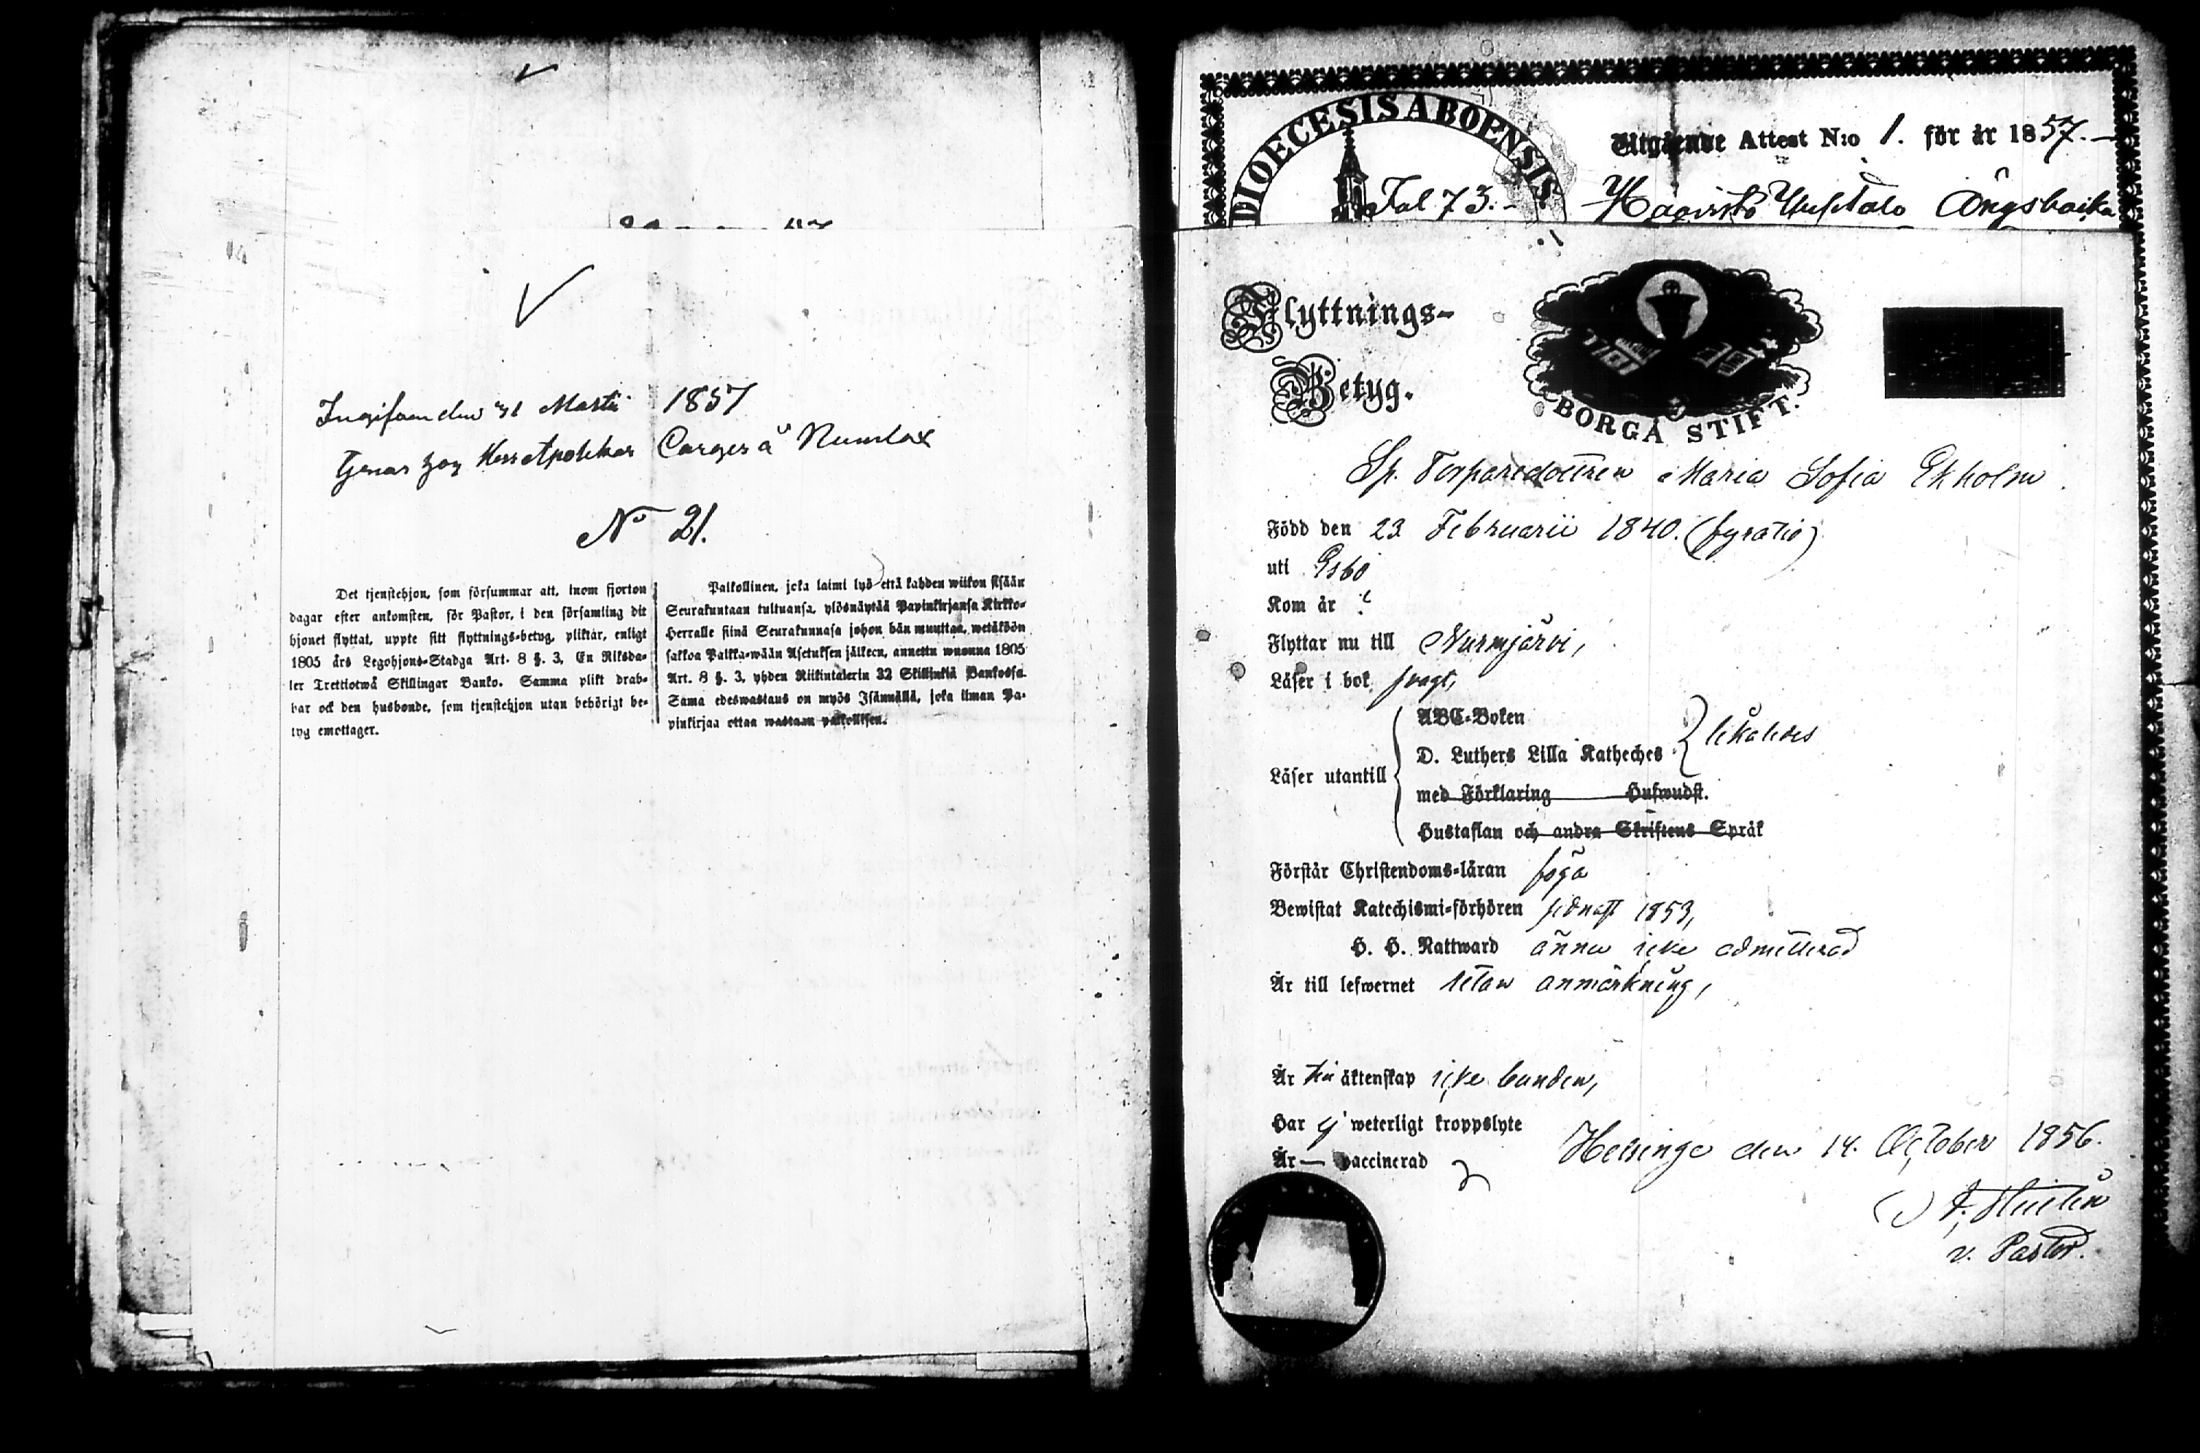 Ingifven den 31 Martii 1857
tjenar hos Herr Apotekar Carger å Numlax
No 21.
Det tjenstehjon, som försummar att, inom fjorton
dagar efter ankomsten, för Pastor, i den församling dit
hjonet flyttat, uppte sitt flyttnings-betyg, pliktar, enligt
1805 års Legohjons-Stadga Art. 8 §. 3, En Riksda-
ler Trettiotwå Skillingar Banko. Samma plikt drab-
bar ock den husbonde, som tjenstehjon utan behörigt be-
tyg emottager.
Palkollinen, joka laimi lyö että kahden wiikon sisään
Seurakuntaan tultuansa, ylösnäytää Papinkirjansa Kirkko-
Herralle siinä Seurakunnasa johon hän muuttaa, wetäköön
sakkoa Palkka-wään Asetuksen jälkeen, annettu wuonna 1805
Art. 8 §. 3, yhden Riikintalerin 32 Skillinkiä Bankossa
Sama edeswastaus on myös Isännällä, joka ilman Pa-
pinkirjaa ottaa wastaan palkollisen.
DIOECESIS ABOENSIS.
Utgående Attest N:o 1. för år 1857.
Fol 73.
BORGÅ STIFT.
Flyttnings-
Betyg.
Sp. Torparedottren Maria Sofia Ekholm
Född den 23 Februarii 1840. (fyratio)
uti Esbo
Kom år
Flyttar nu till Nurmjärvi,
Läser i bok svagt,
Läser utantill
ABC-Boken
D. Luthers Lilla Katheches likaledes
med Förklaring Hufwudst.
Hustaflan och andra Skriftens Språk
Förstår Christendoms-läran föga
Bewistat Katechismi-förhören sednast 1853,
H. H. Nattward ännu icke admitterad
Är till lefwernet utan anmärkning,
Är till äktenskap icke bunden,
Har ej weterligt kroppslyte
Är — vaccinerad
Helsinge den 14. October 1856.
v. Pastor.